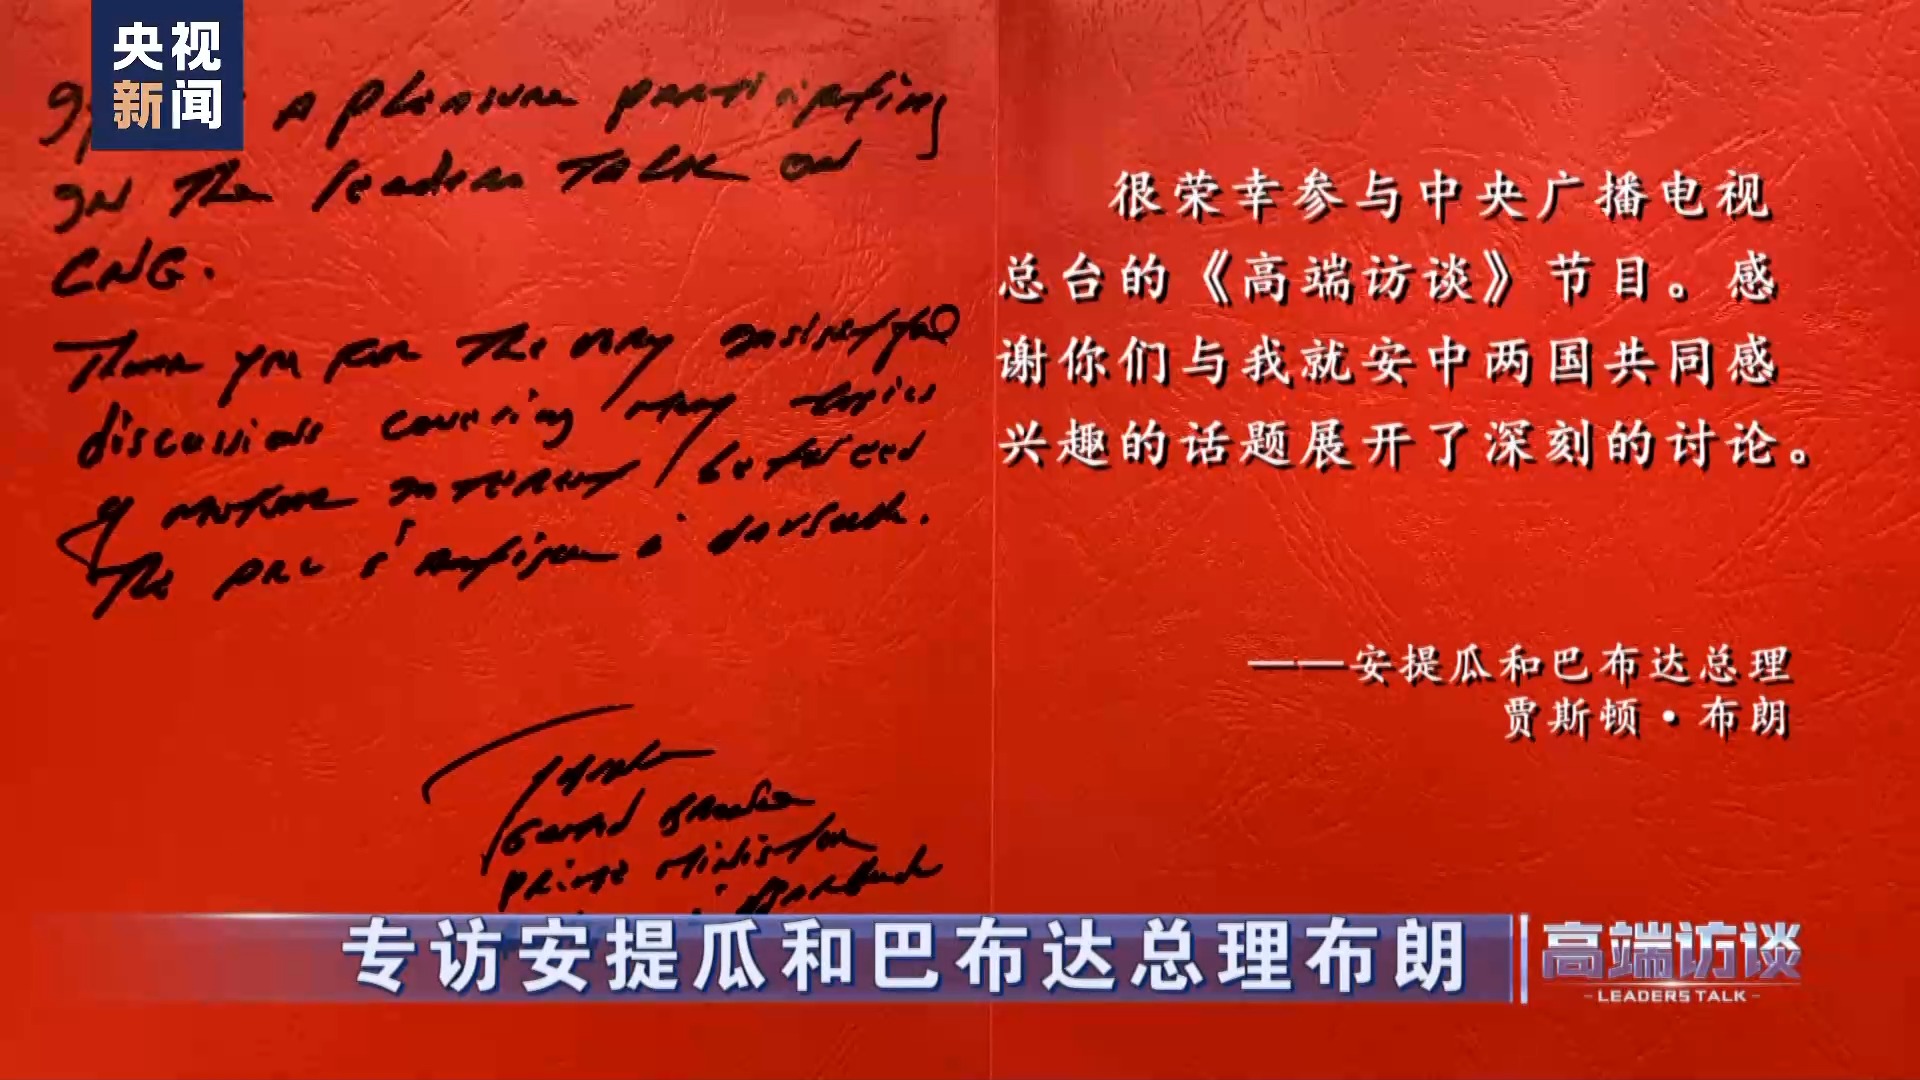 央视
新闻
a pleasure participating
in the leaders Talk on
CNG.
Thank you for the very insightful
discussions covering many topics
of mutual interest between
The PRC & Antigua & Barbuda.
Gaston Browne
Prime Minister
Barbuda
很荣幸参与中央广播电视
总台的《高端访谈》节目。感
谢你们与我就安中两国共同感
兴趣的话题展开了深刻的讨论。
——安提瓜和巴布达总理
贾斯顿·布朗
专访安提瓜和巴布达总理布朗
高端访谈
LEADERS TALK